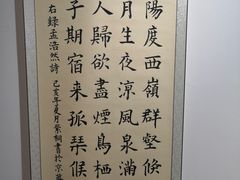 陽度西嶺群壑倏
月生夜涼風泉滿
人歸欲盡煙鳥棲
子期宿來孤琴候
右錄孟浩然詩 己亥年夏月紫桐書於京